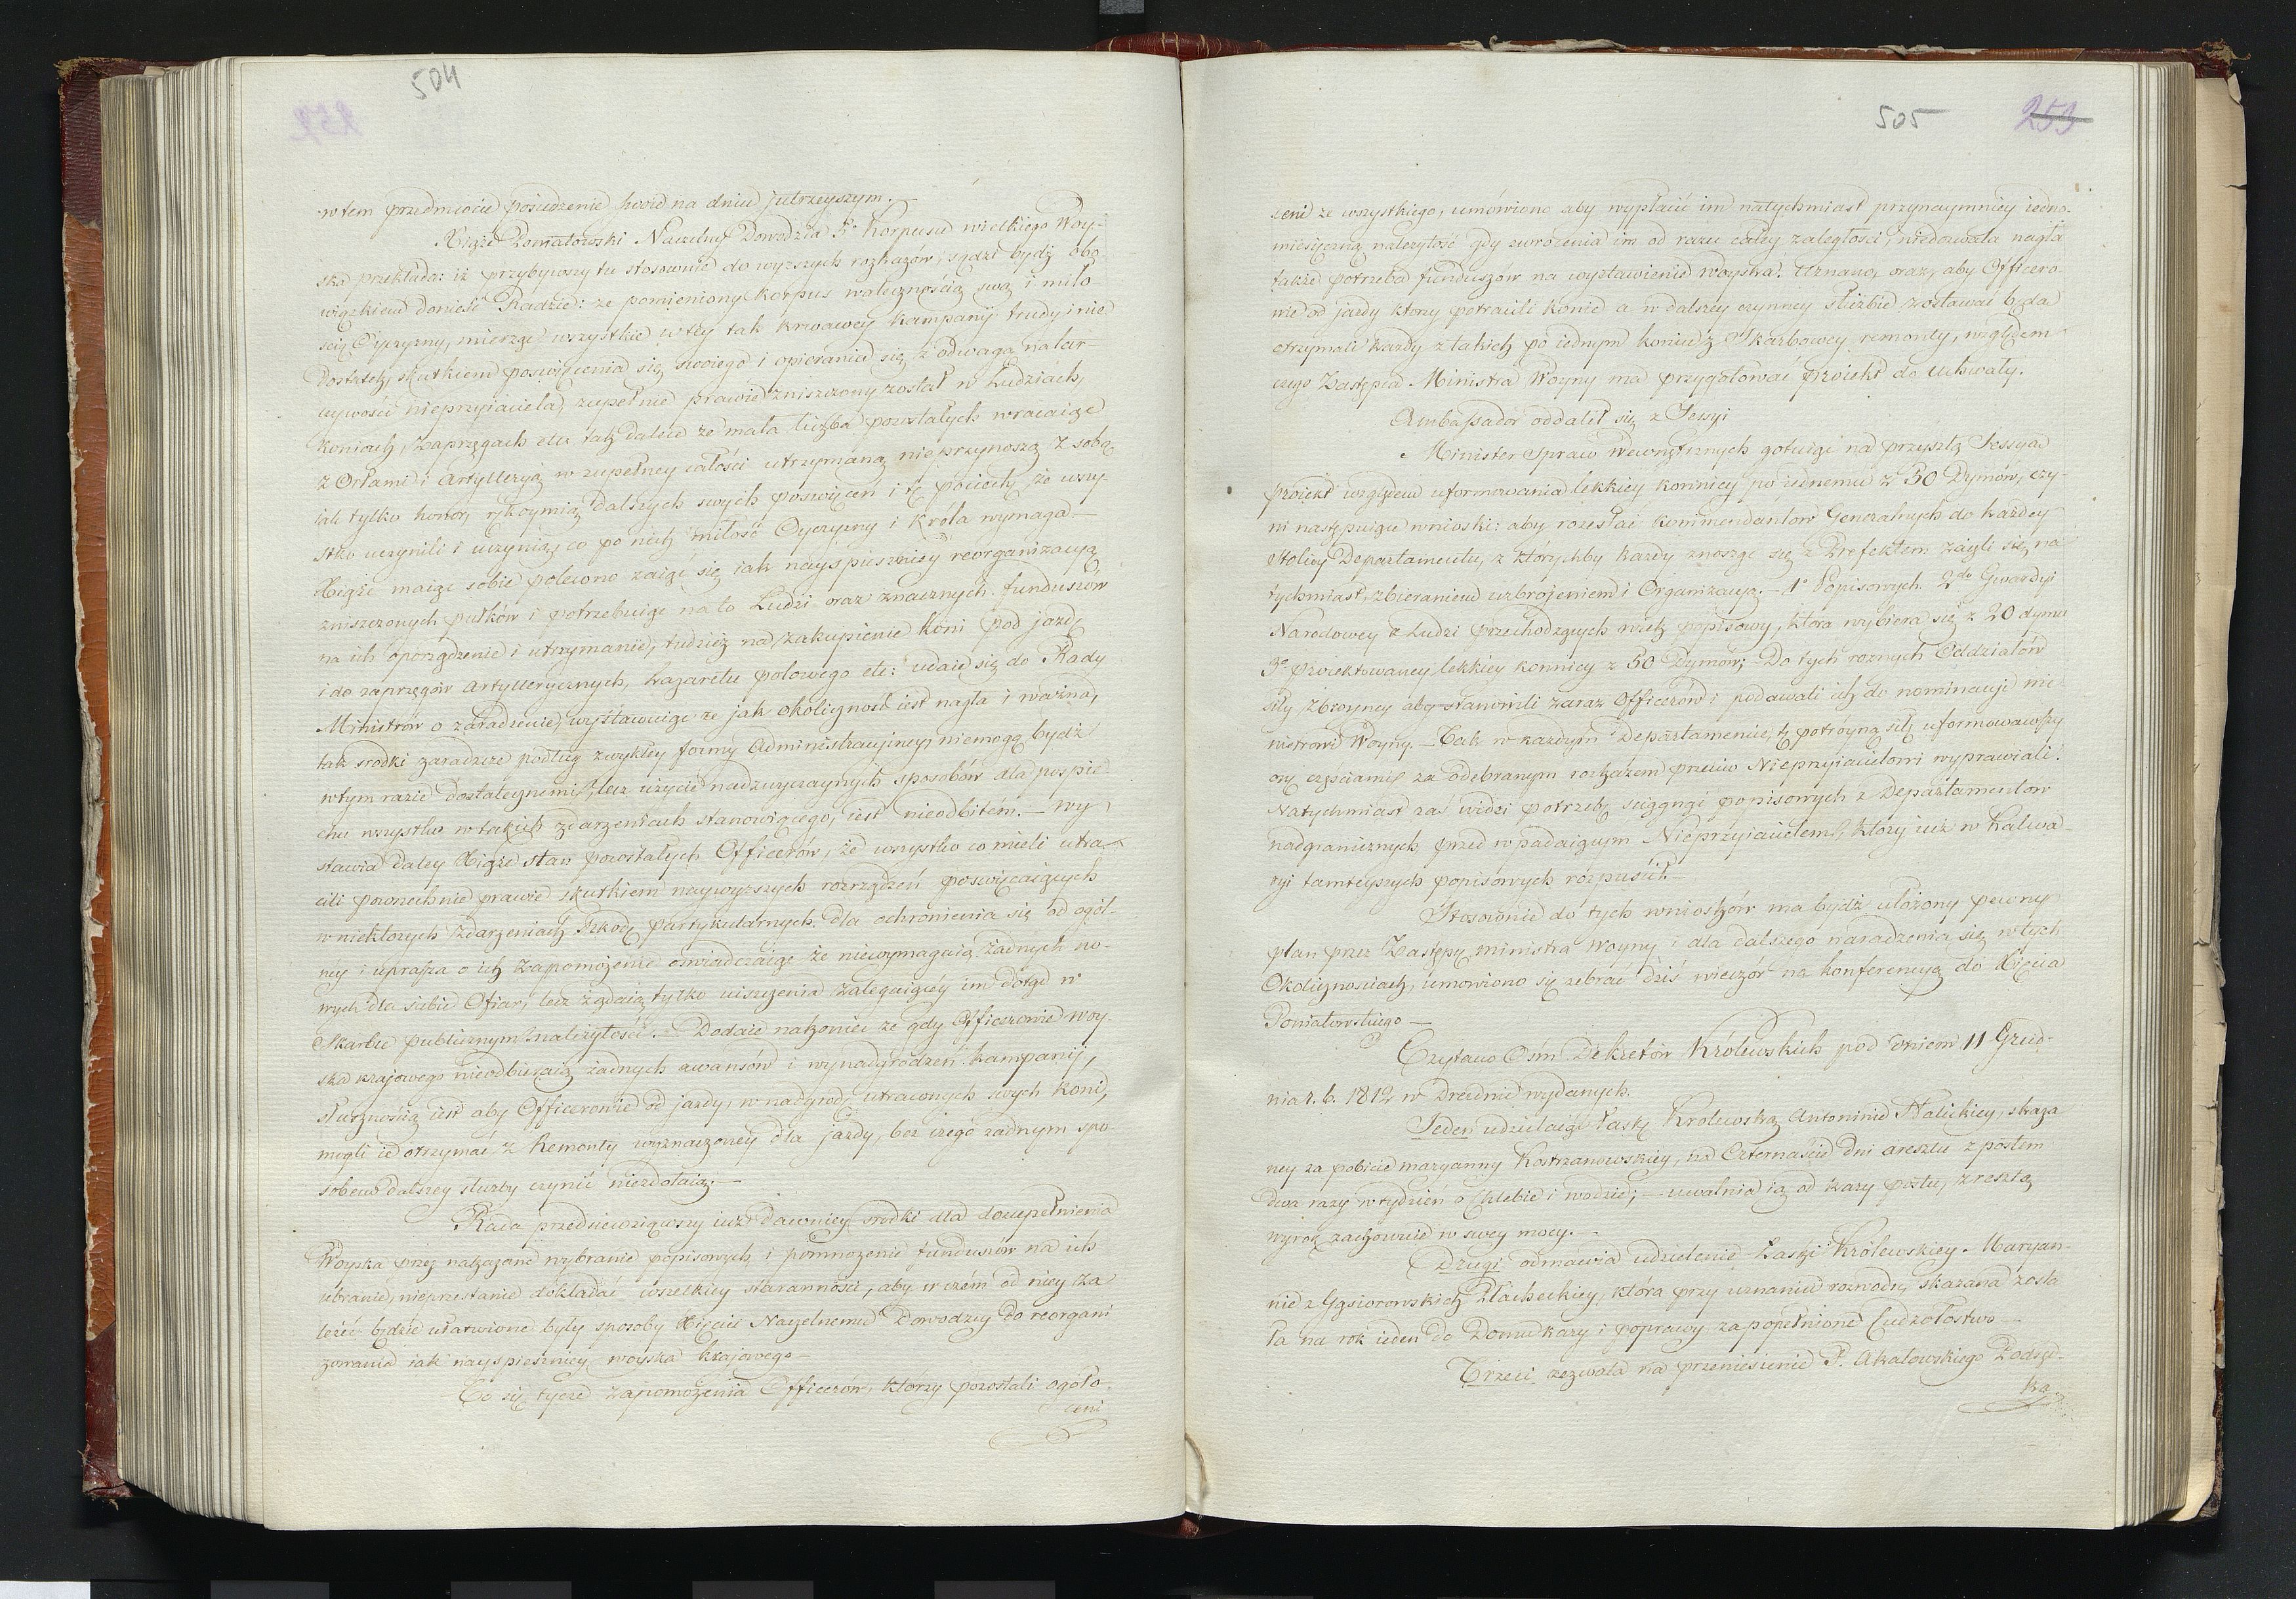 504
252
w tem przedmiocie posiedzenie swoie na dniu jutrzeyszym.
Xiąże Poniatowski Naczelny Dowodzca 5° Korpusu wielkiego Woy-
ska przekłada: iż przybywszy tu stosownie do wyższych rozkazów, sądzi bydź obo-
wiązkiem donieść Radzie: że pomieniony Korpus walecznością swą i miło-
ścią Oyczyzny, mierząc wszystkie w tey tak krwawey kampanij trudy i nie
dostatek, skutkiem poświęcenia się swoiego i opierania się z odwagą natar-
czywości nieprzyiaciela, zupełnie prawie zniszczony został w Ludziach,
koniach, zaprzęgach etc tak dalece że mała liczba pozostałych wracaiąc
z Orłami i Artylleryą w zupełney całości utrzymaną nie przynoszą z sobą
iak tylko honor, rękoymią dalszych swych poświęceń i tę pociechę że wszy-
stko uczynili i uczynią, co po nich miłość Oyczyzny i Króla wymaga.—
Xiąże maiąc sobie polecono zaiąć się iak nayspieszniey reorganizacyą
zniszczonych pułków i potrzebuiąc na to Ludzi oraz znacznych funduszów
na ich oporządzenie i utrzymanie, tudzież na zakupienie koni pod jazdę
i do zaprzęgów Artyllerycznych, Lazaretu polowego etc: udaie się do Rady
Ministrów o zaradzenie, wystawuiąc że jak okoliczność iest nagła i ważna,
tak srodki zaradcze podług zwykłey formy Administracyiney niemogą bydź
w tym razie dostatecznemi, lecz użycie nadzwyczaynych sposobów dla pospie-
chu wszystko w takich zdarzeniach stanowiącego, iest nieodbitem.— Wy-
stawia daley Xiąże stan pozostałych Officerów, że wszystko co mieli utra-
cili powszechnie prawie skutkiem naywyższych rozrządzeń poswięcaiących
w niektorych zdarzeniach szkodę partykularnych dla ochronienia się od ogól-
ney i uprasza o ich zapomożenie oswiadczaiąc że niewymagaią żadnych no-
wych dla siebie Ofiar, lecz żądaią tylko uiszczenia zalegaiącey im dotąd w
Skarbie publicznym należytości.— Dodaie nakoniec że gdy Officerowie woy-
ska krajowego nieodbieraią żadnych awansów i wynadgrodzeń kampanij,
słusznością iest aby Officerowie od jazdy, w nadgrodę utraconych swych koni,
mogli ie otrzymać z Remonty wyznaczoney dla jazdy, bez czego żadnym spo
sobem dalszey służby czynić niezdołaią.—
Rada przedsiewziąwszy iuż dawniey srodki dla dozupełnienia
Woyska przez nakazane wybranie popisowych i pomnożenie funduszów na ich
ubranie, nieprzestanie dokładać wszelkiey staranności, aby w czém od niey za
leżeć będzie ułatwione były sposoby Xięciu Naczelnemu Dowodzcy do reorgani
zowania iak nayspieszniey woyska krajowego—
Co się tycze zapomożenia Officerów, ktorzy pozostali ogóło-
ceni
505
253
ceni ze wszystkiego, umówiono aby wypłacić im natychmiast przynaymniey iedno-
miesięczną należytość gdy zwrocenia im od razu całey zaległości, niedozwala nagła
także potrzeba funduszow na wystawienie woyska. Uznano, oraz, aby Officero-
wie od jazdy ktorzy potracili konie a w dalszey czynney służbie zostawać będą
otrzymali każdy z takich po iednym koniu z Skarbowey remonty, względem
czego Zastępca Ministra Woyny ma przygotować projekt do uchwały.
Ambassador oddalił się z Sessyi
Minister Spraw Wewnętrznych gotuiąc na przyszłą Sessya
projekt względem uformowania lekkiey konnicy po iednemu z 50 Dymów, czy-
ni następuiące wnioski: aby rozesłać Kommendantów Generalnych do każdey
Stolicy Departamentu, z którychby każdy znosząc się z Prefektem zaięli się na
tychmiast, zbieraniem uzbrojeniem i Organizacyą.— 1° Popisowych 2do Gwardyi
Narodowey z Ludzi przechodzących wiek popisowy, która wybiera się z 20 dymu
3° projektowaney lekkiey konnicy z 50 Dymów; Do tych rożnych Oddziałów
siły zbroyney aby stanowili zaraz Officerów i podawali ich do nominacyi mi-
nistrowi Woyny.— Tak w każdym Departamencie, tę potróyną siłę uformowawszy
oną częściami za odebranym rozkazem przeciw Nieprzyiacielowi wyprawiali.
Natychmiast zaś widzi potrzebę sciągnąć popisowych z Departamentow
nadgranicznych przed wpadaiącym Nieprzyiacielem, który iuż w Kalwa-
ryi tamteyszych popisowych rozpuścił.—
Stosownie do tych wniosków ma bydź ułożony pewny
plan przez Zastępcę ministra Woyny i dla dalszego naradzenia się w tych
Okolicznościach, umowiono się zebrać dziś wieczór na konferencyą do Xięcia
Poniatowskiego—
Czytano Ośm Dekretów Królewskich pod dniem 11 Grud-
nia r. b. 1812 w Dreznie wydanych.
Jeden udzielaiąc łaskę Królewską Antoninie Halickiey, skaza
ney za pobicie maryanny Kostrzanowskiey, na Czternaście dni aresztu z postem
dwa razy w tydzień o chlebie i wodzie;— uwalnia ią od kary postu, zresztą
wyrok zachowuie w swey mocy.—
Drugi odmawia udzielenie Łaski Królewskiey Maryan-
nie z Gąsiorowskich Płacheckiey, która przy uznaniu rozwodu, skazana zosta
ła na rok ieden do Domu kary i poprawy za popełnione Cudzołostwo—
Trzeci zezwala na przeniesienie P. Akałowskiego Podsęd-
ka